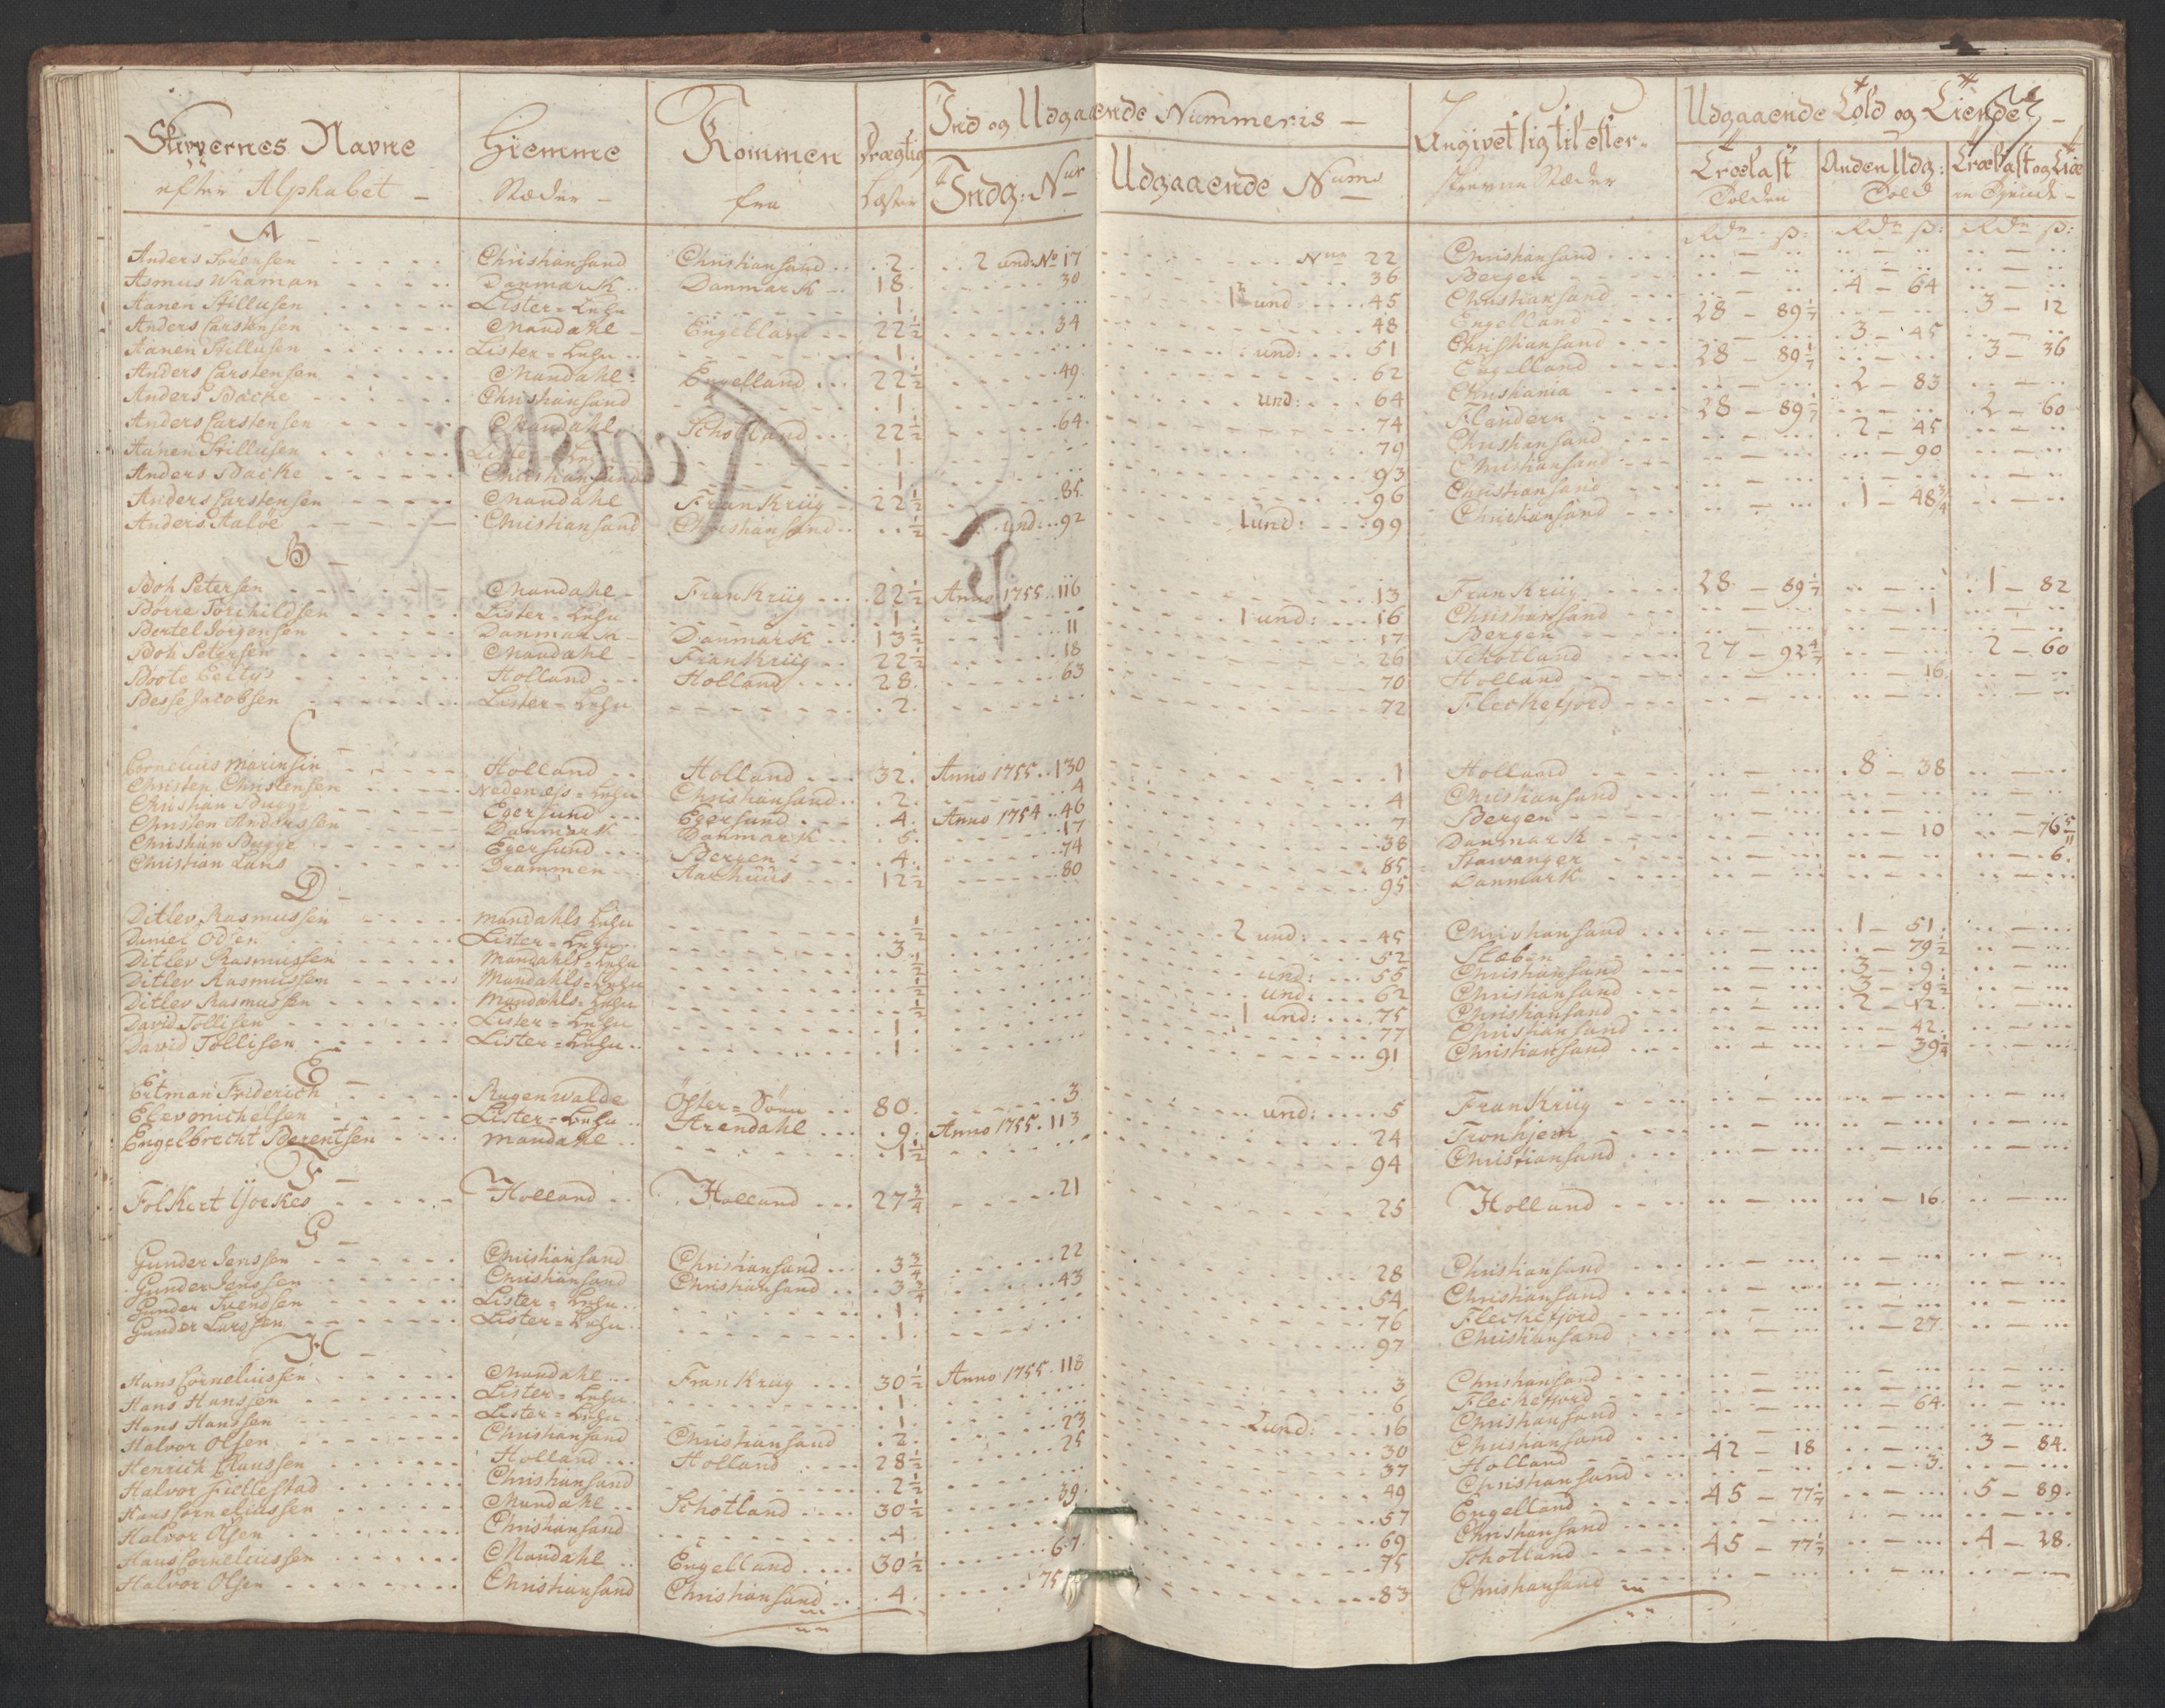 Skippernes Navne efter Alphabet | Hiemme Stæder | Kommen fra | Drægtig Læster | Ind og Udgaaende Nummeris | Angivet sig til efter- skrevne Stæder | Udgaaende Told og Tiende
Indg: Nus | Udgaaende Nums | Trælast Tolden | Anden Udg: Told | Trælast og
Rdr ß: | Rdr ß: | Rdr ß:
A
Anders Sørensen | Christiansand | Christiansand | 2 | 2 und: No 17 | Num 22 | Christiansand
Asmus Wraman | Danmark | Danmark | 18 | 30 | 36 | Bergen | 4 - 64
Aanen Stillusen | Lister = Lehn | 1 | und 45 | Christiansand
Anders Carstensen | Mandahl | Engelland | 22 1/2 | 34 | 48 | Engelland | 28 - 89 1/7 | 3 - 12
Aanen Stillusen | Lister = Lehn | 1 | und: 51 | Christiansand | 3 - 45
Anders Carstensen | Mandahl | Engelland | 22 1/2 | 49 | 62 | Engelland | 28 - 89 1/7 | 3 - 36
Anders Backe | Christiansand | 1 | und: 64 | Christiania | 2 - 83
Anders Carstensen | Mandahl | Schotland | 22 1/2 | 64 | 74 | Flandern | 28 - 89 1/7 | 2 - 60
Aanen Stillusen | Lister = Lehn | 1 | 79 | Christiansand | 2 - 45
Anders Backe | Christiansand | 1 | 93 | Christiansand | 90
Anders Carstensen | Mandahl | Frankriig | 22 1/2 | 85 | 96 | Christiansand
Anders Aaløe | Christiansand | Christiansand | 1/2 | und: 92 | 1 und: 99 | Christiansand | 1 - 48 3/4
B
Boh Petersen | Mandahl | Frankriig | 22 1/2 | Anno 1755 116 | 13 | Frankriig | 28 - 89 1/7 | 1 - 82
Børre Torchildsen | Lister = Lehn | 1 | 1 und: 16 | Christiansand | 1
Bertel Jørgensen | Danmark | Danmark | 13 1/2 | 11 | 17 | Bergen
Boh Petersen | Mandahl | Frankriig | 22 1/2 | 18 | 26 | Schotland | 27 - 92 4/7 | 2 - 60
Boote Eeltys | Holland | Holland | 28 | 63 | 70 | Holland | 16
Besse Jacobsen | Lister = Lehn | 2 | 72 | Fleckefjord
C
Cornelius Marinsin | Holland | Holland | 32 | Anno 1755 130 | 1 | Holland | 8 - 38
Christen Christensen | Nedenæs = Lehn | Christiansand | 2 | 4 | 4 | Christiansand
Christian Bugge | Egersund | Egersund | 4 | Anno 1754 46 | 7 | Bergen
Christen Anderssen | Danmark | Danmark | 5 | 17 | 38 | Danmark | 10 | 76 5/11
Christian Bugge | Egersund | Bergen | 4 | 74 | 85 | Stawanger | 6
Christian Lans | Drammen | Aarhuus | 12 1/2 | 80 | 95 | Danmark
D
Ditlev Rasmussen | Mandahls Lehn | 1/2 | 2 und: 45 | Christiansand | 1 - 51
Daniel Odsen | Lister = Lehn | 3 | 52 | 79 1/2
Ditlev Rasmussen | Mandahls = Lehn | 1/2 | und: 55 | Christiansand | 3 - 9
Ditlev Rasmussen | Mandahls = Lehn | 1/2 | und: 62 | Christiansand | 3 - 9 1/2
Ditlev Rasmussen | Mandahls = Lehn | 1/2 | 1 und: 75 | Christiansand | 2 - 12
David Tollisen | Lister = Lehn | 1 | 77 | Christiansand | 42
David Tollisen | Lister = Lehn | 1 | 91 | Christiansand | 39 1/4
E
Ertman Friderich | Rugenwalde | Öster = Søen | 80 | 3 | und: 5 | Frankriig
Elev Michelsen | Lister = Lehn | Arendahl | 9 | Anno 1755 113 | 24 | Tronhjem
Engelbrecht Berentsen | Mandahl | 1 1/2 | 94 | Christiansand
F
Folkert Gjerkes | Holland | Holland | 27 3/4 | 21 | 25 | Holland | 16
G
Gunder Jenssen | Christiansand | Christiansand | 3 3/4 | 22 | 28 | Christiansand
Gunder Jenssen | Christiansand | Christiansand | 3 3/4 | 43 | 54 | Christiansand
Gunder Svendsen | Lister = Lehn | 1 | 76 | Fleckefjord
Gunder Larssen | Lister = Lehn | 1 | 97 | Christiansand | 27
H
Hans Corneliussen | Mandahl | Frankriig | 30 1/2 | Anno 1755 118 | 3 | Christiansand
Hans Hanssen | Lister = Lehn | 1 | 6 | Fleckefjord
Hans Hanssen | Lister = Lehn | 1 | und: 16 | Christiansand | 64
Halvor Olsen | Christiansand | Christiansand | 2 | 23 | 30 | Christiansand
Henrich Claussen | Holland | Holland | 28 1/2 | 25 | 37 | Holland | 42 - 18 | 3 - 84
Halvor Fiellestad | Christiansand | 2 1/2 | 49 | Christiansand | 3
Hans Corneliussen | Mandahl | Schotland | 30 1/2 | 39 | 57 | Engelland | 45 - 77 1/7 | 5 - 89
Halvor Olsen | Christiansand | 4 | 69 | Christiansand
Hans Corneliussen | Mandahl | Engelland | 30 1/2 | 67 | 75 | Schotland | 45 - 77 1/7 | 4 - 28
Halvor Olsen | Christiansand | Christiansand | 4 | 75 | 83 | Christiansand